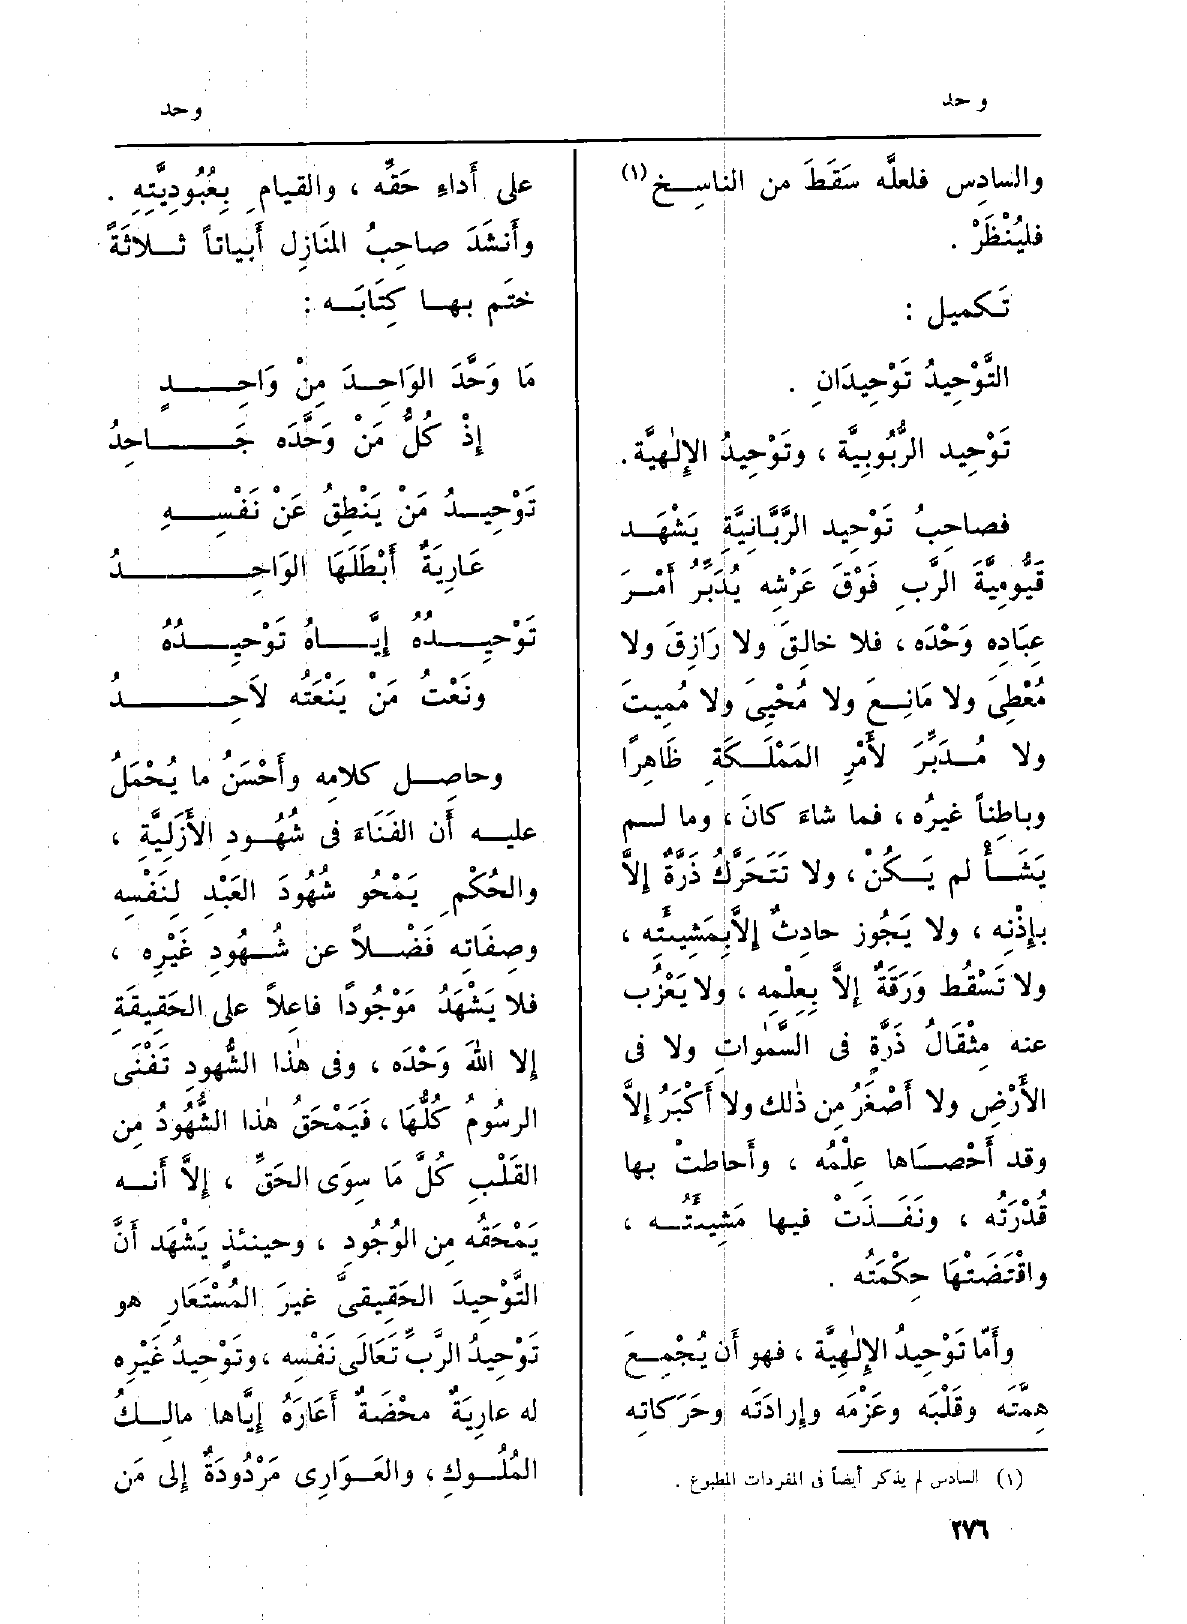 وحد
وحد
والسادِس فلعلَّه سَقَطَ من الناسِـخ (١)
فليُنْظَرْ .
تَـكميل :
التَّوْحِيدُ تَوْحِيدَانِ .
تَوْحِيد الرُّبُوبِيَّة ، وتَوْحِيدُ الإِلٰهِيَّة .
فصاحِبُ تَوْحِيد الرَّبَّانِيَّةِ يَشْهَـد
قَيُّومِيَّةَ الرَّبِ فَوْقَ عَرْشِه يُدَبِّرُ أَمْـرَ
عِبَادِه وَحْدَه ، فلا خالِقَ ولا رَازِقَ ولا
مُعْطِىَ ولا مَانِـعَ ولا مُحْيِىَ ولا مُمِيتَ
ولا مُـدَبِّرَ لأَمْرِ المَمْلَـكَةِ ظَاهِرًا
وباطِناً غيرُه ، فما شاءَ كانَ ، وما لـم
يَشَـأْ لم يَـكُنْ ، ولا تَتَحَرَّكُ ذَرَّةٌ إِلاَّ
بإِذْنِه ، ولا يَجُوز حادِثٌ إِلاَّبِمَشِيئَتِه ،
ولا تَسْقُط وَرَقَةٌ إِلاَّ بِعِلْمِه ، ولا يَعْزُب
عنه مِثْقَالُ ذَرَّةٍ فى السَّمٰواتِ ولا فى
الأَرْضِ ولا أَصْغَرُ مِن ذٰلك ولا أَكْبَرُ إِلاَّ
وقد أَحْصَـاها عِلْمُه ، وأَحاطتْ بها
قُدْرَتُه ، ونَفَـذَتْ فيها مَشِيئَتُـه ،
واقْتَضَتْهَا حِكْمَتُه .
وأَمّا تَوْحِيدُ الإِلٰهِيَّة ، فهو أَن يُجْمِـعَ
هِمَّتَه وقَلْبَه وعَزْمَه وإِرادَتَه وحَرَكاتِه
(١) السادس لم يذكر أيضاً فى المفردات المطبوع .
على أَداءِ حَقِّه ، والقيامِ بِعُبُودِيَّتِهِ .
وأَنشَدَ صاحِبُ المَنَازِل أَبياتاً ثـلاثَةً
ختَم بهـا كِتَابَـه :
مَا وَحَّدَ الوَاحِـدَ مِنْ وَاحِـــدٍ
إِذْ كُلُّ مَنْ وَحَّدَه جَـــاحِدُ
تَوْحِيـدُ مَنْ يَنْطِقُ عَنْ نَفْسِـــهِ
عَارِيَةٌ أَبْطَلَهَا الوَاحِـــدُ
تَوْحِيـــدُهُ إِيَّـــاهُ تَوْحِيـدُهُ
ونَعْتُ مَنْ يَنْعَتُه لاَحِـــدُ
وحاصِـل كلامِه وأَحْسَنُ ما يُحْمَلُ
عليـه أَن الفَنَاءَ فى شُهُـودِ الأَزَلِيَّةِ ،
والحُكْمِ يَمْحُو شُهُودَ العَبْدِ لِنَفْسِه
وصِفَاتِه فَضْـلاً عن شُـهُودِ غَيْرِه ،
فلا يَشْهَدُ مَوْجُودًا فاعِلاً على الحَقِيقَةِ
إِلا اللهَ وَحْدَه ، وفى هٰذا الشُّهُودِ تَفْنَى
الرسُومُ كُلُّهَا ، فَيَمْحَقُ هٰذا الشُّهُودُ مِن
القَلْبِ كُلَّ مَا سِوَى الحَقِّ ، إِلاَّ أَنـه
يَمْحَقُه مِن الوُجُودِ ، وحينئذٍ يَشْهَد أَنَّ
التَّوْحِيدَ الحَقِيقىَّ غيرَ المُسْتَعَارِ هو
تَوْحِيدُ الرَّبِّ تَعَالَى نَفْسِه ، وتَوْحِيدُ غَيْرِه
له عارِيَةٌ محْضَةٌ أَعَارَهُ إِيَّاها مالِـكُ
المُلُـوكِ ، والعَـوَارِى مَرْدُودَةٌ إِلى مَن
٢٧٦